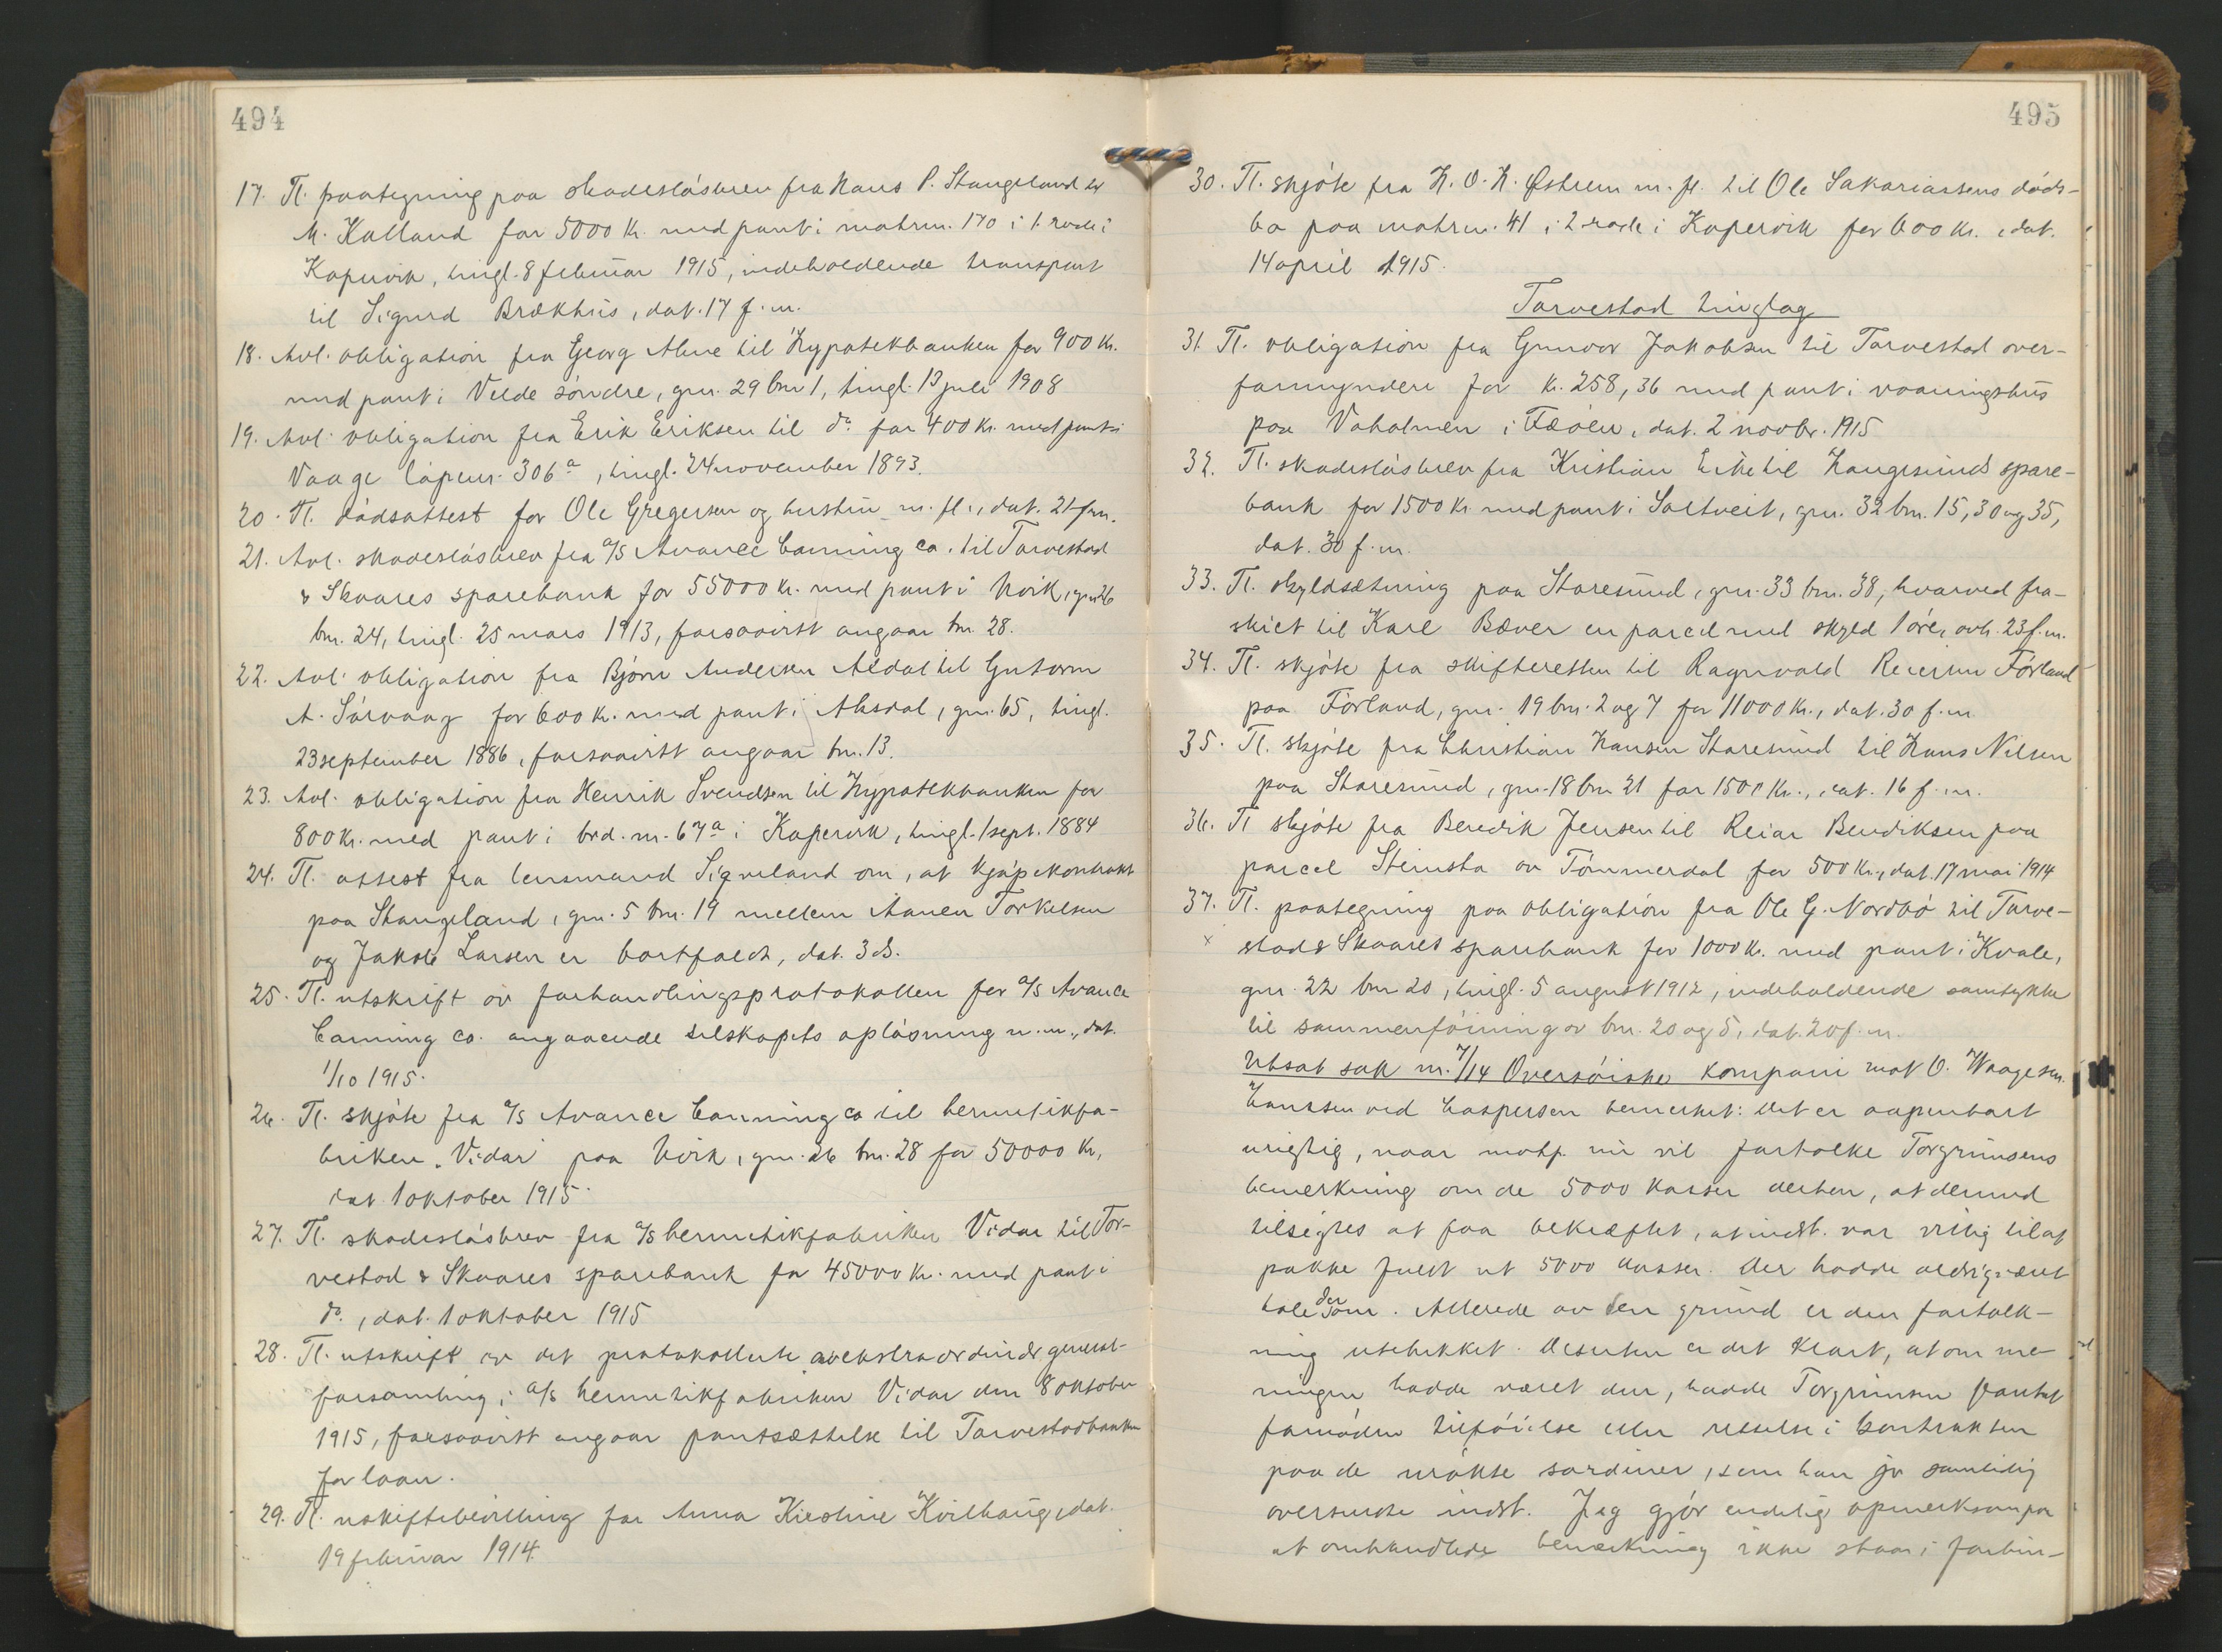 494
17. Tl. paategning paa skadesløsbrev fra Hans P. Stangeland til
M. Kalland for 5000 kr. med pant i matrnr. 170 i 1. rode i
Kopervik, tingl. 8 februar 1915, indeholdende transport
til Sigurd Brækhus, dat. 17 f.m.
18. Avl. obligation fra Georg Alne til Hypotekbanken for 900 kr.
med pant i Velde søndre, gnr. 29 bnr 1, tingl. 13 juli 1908
19. Avl. obligation fra Erik Eriksen til do. for 400 kr. med pant i
Vaage løpenr. 306a, tingl. 24 november 1893.
20. Tl. dødsattest for Ole Gregersen og hustru m. fl., dat. 21 f.m.
21. Avl. skadesløsbrev fra A/S Avance Canning co. til Torvestad
& Skaares sparebank for 55000 kr. med pant i Kvik, gnr 26
bnr. 24, tingl. 25 mars 1913, forsaavitt angaar bnr. 28.
22. Avl. obligation fra Bjørn Andersen Alsdal til Gutorm
A. Sørvaag for 600 kr. med pant i Aksdal, gnr. 65, tingl.
23 september 1886, forsaavitt angaar bnr. 13.
23. Avl. obligation fra Henrik Svendsen til Hypotekbanken for
800 kr. med pant i brd. nr. 67a i Kopervik, tingl. 1 sept. 1884
24. Tl. attest fra lensmand Sigveland om, at kjøpekontrakt
paa Stangeland, gnr. 5 bnr. 19 mellem Torkelsen
og Jakob Larsen er bortfaldt, dat. 3 ds.
25. Tl. utskrift av forhandlingsprotokollen for A/S Avance
Canning co. angaaende selskapets opløsning m.m., dat.
1/10 1915.
26. Tl. skjøte fra A/S Avance Canning co til hermetikfa-
briken "Vidar" paa Kvik, gnr. 26 bnr. 28 for 50000 kr,
dat. 1 oktober 1915.
27. Tl. skadesløsbrev fra A/S hermetikfabriken Vidar til Tor-
vestad & Skaares sparebank for 45000 kr. med pant i
do., dat. 1 oktober 1915
28. Tl. utskrift av det protokollerte av ekstraordinær general-
forsamling i A/S hermetikfabriken Vidar den 8 oktober
1915, forsaavitt angaar pantsættelse til Torvestadbanken
for laan.
29. Tl. uskiftebevilling for Anna Kirstine Kvilhaug, dat.
19 februar 1914.
495
30. Tl. skjøte fra H. O. H. Østrem m. fl. til Ole Sakariassens døds-
bo paa matrnr. 41 i 2 rode i Kopervik for 600 kr., dat.
14 april 1915.
Torvestad tinglag
31. Tl. obligation fra Gunvor Jakobsen til Torvestad over-
formynderi for kr. 258,36 med pant i vaaningshus
paa Vaholmen i Fæøen, dat. 2 novbr. 1915
32. Tl. skadesløsbrev fra Kristian Eike til Haugesunds spare-
bank for 1500 kr. med pant i Saltveit, gnr. 32 bnr. 15, 30 og 35,
dat. 30 f.m.
33. Tl. skyldsætning paa Storesund, gnr. 33 bnr. 38, hvorved fra-
skilt til Karl Bæver en parcel med skyld 1 øre, avh. 23 f.m.
34. Tl. skjøte fra skifteretten til Ragnvald Reiersen Førland
paa Førland, gnr. 19 bnr. 2 og 7 for 11000 kr., dat. 30 f.m.
35. Tl. skjøte fra Christian Hansen Storesund til Hans Nilsen
paa Storesund, gnr. 18 bnr 21 for 1500 kr., dat. 16 f.m.
36. Tl skjøte fra Beredik Jensen til Reiar Bendiksen paa
parcel Steinsta av Tømmerdal for 500 kr., dat. 17 mai 1914
37. Tl. paategning paa obligation fra Ole G. Nordbø til Torve-
x stad & Skaares sparebank for 1000 kr. med pant i Kvale,
gnr. 22 bnr 20, tingl. 5 august 1912, indeholdende samtykke
til sammenføining av bnr. 20 og 5, dat. 20 f.m.
Utsat sak nr. 7/14 Oversøiske kompani mot O. Waage sen.
Hanssen ved Caspersen bemerket: Det er aapenbart
urigtig, naar motp. nu vil fortolke Torgrimsens
bemerkning om de 5000 kasser derhen, at dermed
tilsigtes at faa bekræftet, at indst. var villig til at
pakke fuldt ut 5000 kasser. Der hadde aldrig været
tale derom. Allerede av den grund er den fortolk-
ning utelukket. Desuten er det klart, at om me-
ningen hadde været den, hadde Torgrimsen foretat
fornøden tilføielse eller rettelse i kontrakten
paa de urøkte sardiner, som han jo samtidig
oversendte indst. Jeg gjør endelig opmerksom paa
at omhandlede bemerkning ikke staar i forbin-